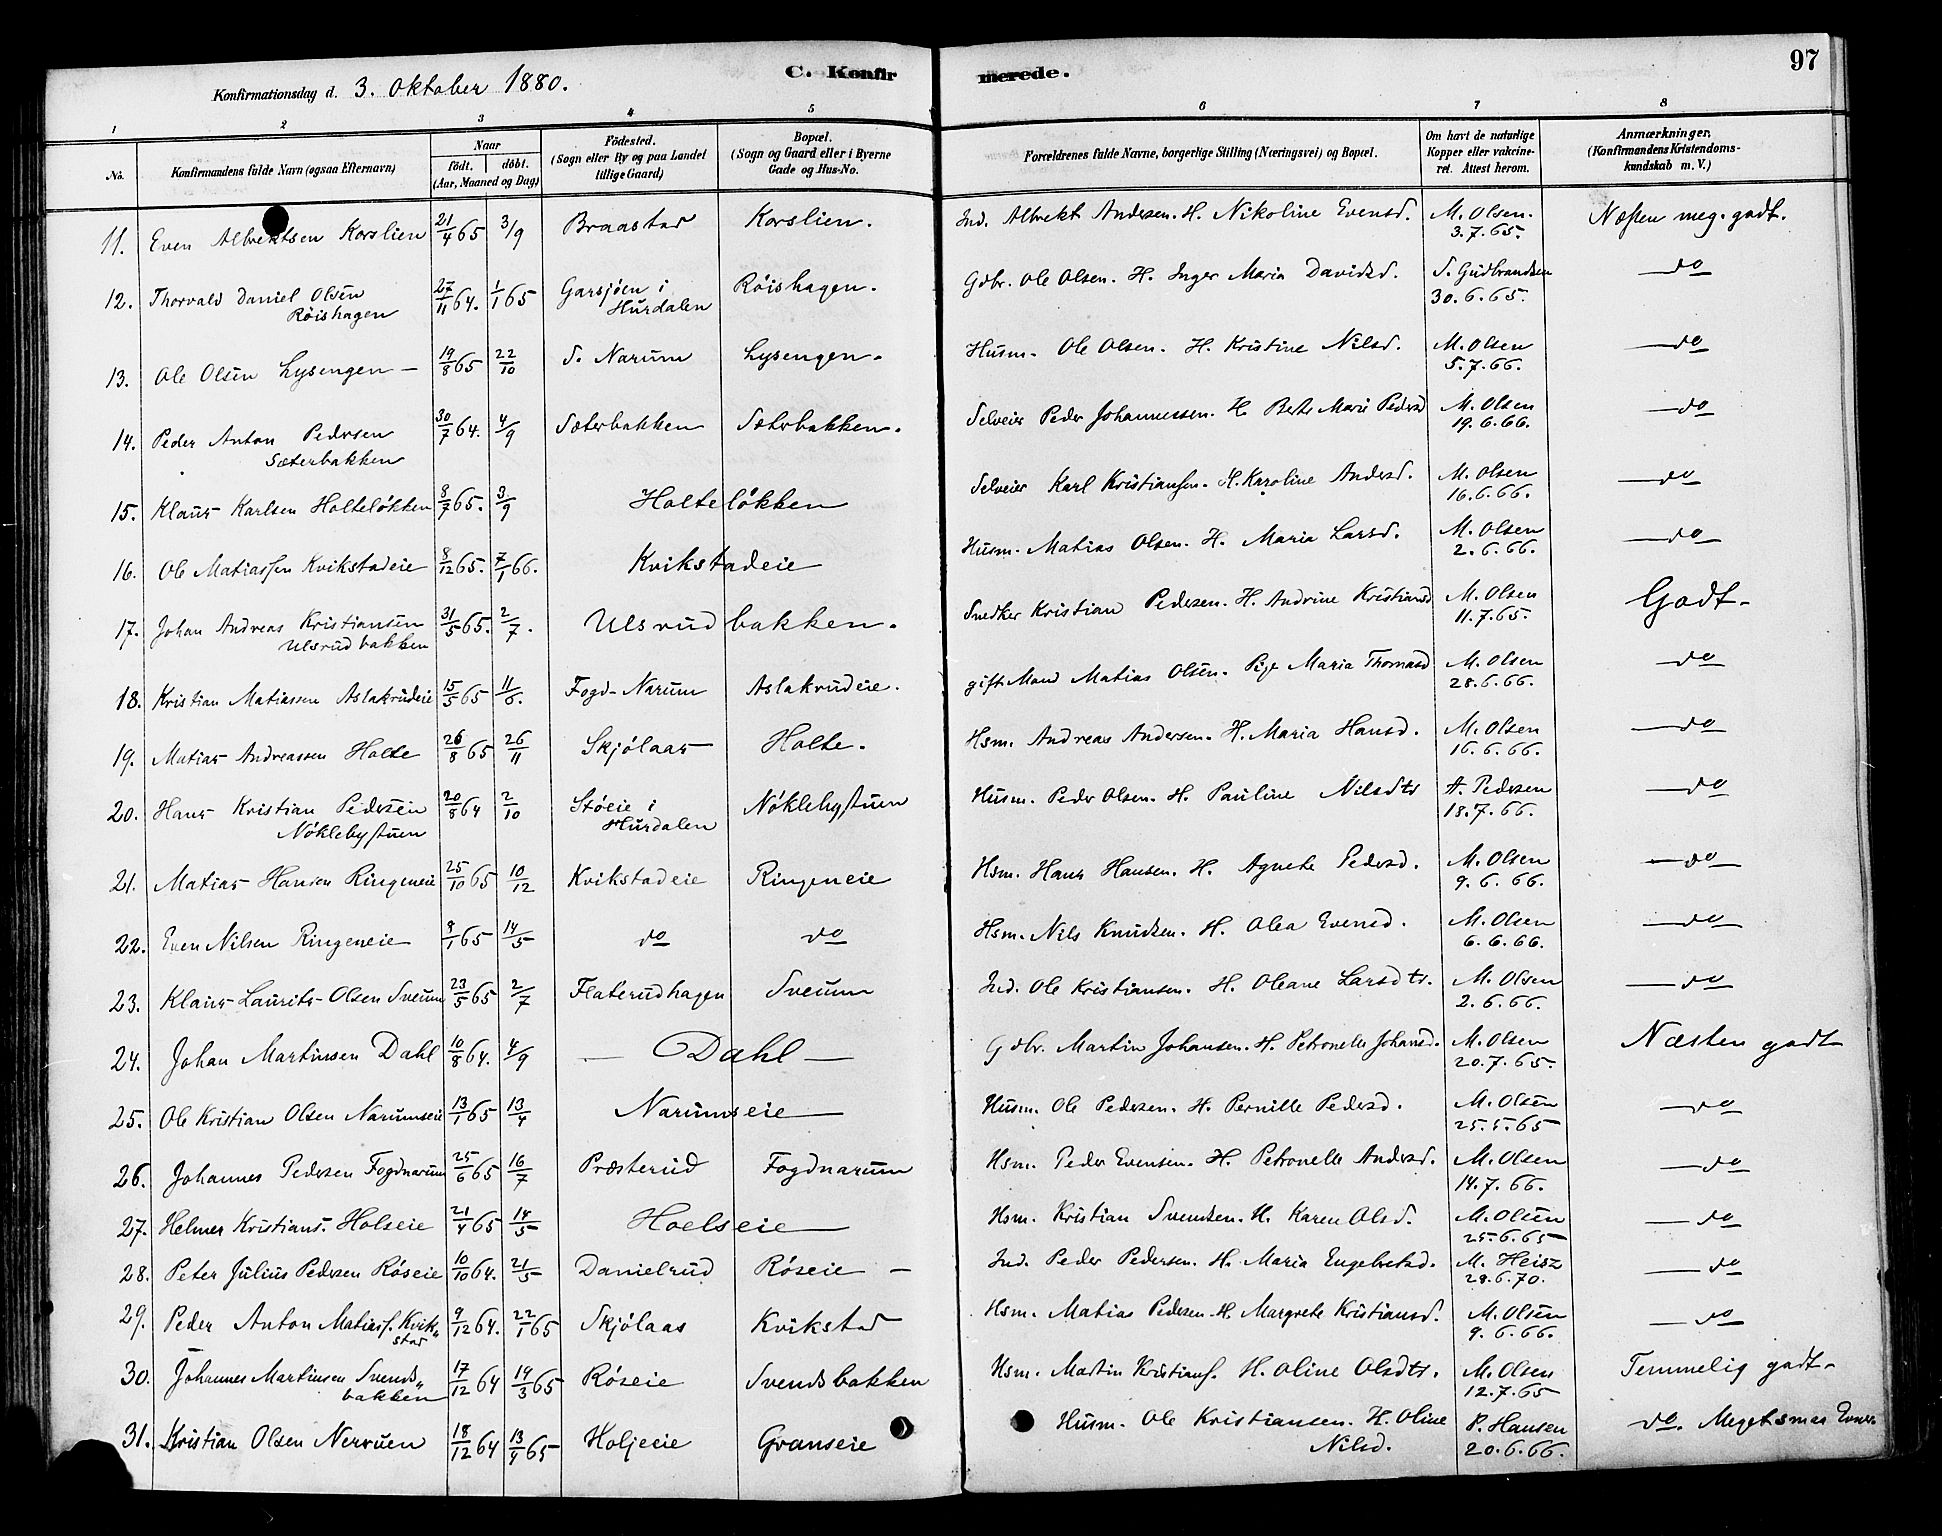 97
C. Konfirmerede.
Konfirmationsdag d. 3. Oktober 1880.
1 2 3 4 5 6 7 8
No. Konfirmandens fulde Navn (ogsaa Efternavn) Naar födt. döbt. (Aar, Maaned og Dag) Födested. (Sogn eller By og paa Landet tillige Gaard) Bopæl. (Sogn og Gaard eller i Byerne Gade og Hus-No. Forældrenes fulde Navne, borgerlige Stilling (Næringsvei) og Bopæl. Om havt de naturlige Kopper eller vakcineret. Attest herom. Anmærkninger. (Konfirmandens Kristendomskundskab m. V.)
11. Even Albrektsen Korslien 21/4 65 3/9 Braastad Korslien. Ind. Albrekt Andersen. H. Nikoline Evensd. M. Olsen. 3.7.65. Næsten meg. godt.
12. Thorvald Daniel Olsen Röishagen 27/11 64. 1/1 65 Garsjöen i Hurdalen Röishagen. Gdbr. Ole Olsen. H. Inger Maria Davidsd. S. Gudbrandsen 30.6.65. do
13. Ole Olsen Lysengen 19/8 65 22/10 S. Narum Lysengen. Husm. Ole Olsen. H. Kristine Nilsd. M. Olsen 5.7.66. do
14. Peder Anton Pedersen Sæterbakken 30/7 64. 4/9 Sæterbakken Sæterbakken. Selveier Peder Johannessen. H. Berte Marie Pedersd M. Olsen 19.6.66. do
15. Klaus Karlsen Holtelökken 8/7 65. 3/9 Holtelökken Selveier Karl Kristiansen. H. Karoline Andersd. M. Olsen 16.6.66. do
16. Ole Matiassen Kvikstadeie 8/12 65. 7/1 66. Kvikstadeie Husm. Matias Olsen. H. Maria Larsd. M. Olsen 2.6.66. do
17. Johan Andreas Kristiansen Ulsrudbakken 31/5 65. 2/7. Ulsrudbakken. Snedker Kristian Pedersen. H. Andrine Kristiansd M. Olsen 11.7.65. Godt
18. Kristian Matiassen Aslakrudeie 15/5 65 11/6. Fogd-Narum Aslakrudeie. gift Mand Matias Olsen. Pige Maria Thomasd M. Olsen 28.6.66. do
19. Matias Andreassen Holte 26/8 65 26/11 Skjölaas Holte. Hsm. Andreas Andersen. H. Maria Hansd. M. Olsen 16.6.66. do
20. Hans Kristian Pedersen Nöklebystuen 20/8 64 2/10 Stöeie i Hurdalen Nöklebystuen Husm. Peder Olsen. H. Pauline Nilsdtr A. Pedersen 18.7.66. do
21. Matias Hansen Ringeneie 25/10 65 10/12 Kvikstadeie Ringeneie Hsm. Hans Hansen. H. Agnete Pedersd. M. Olsen 9.6.66. do
22. Even Nilsen Ringeneie 8/1 65 14/5 do do Hsm. Nils Knudsen. H. Olea Evensd. M. Olsen 6.6.66. do
23. Klaus Laurits Olsen Sveum 23/5 65 2/7 Flaterudhagen Sveum Ind. Ole Kristiansen. H. Oleane Larsdtr. M. Olsen 2.6.66. do
24. Johan Martinsen Dahl 10/8 64. 4/9 Dahl Gdbr. Martin Johansen. H. Petronelle Johansd. M. Olsen 20.7.65. Næsten godt
25. Ole Kristian Olsen Narumseie 13/1 65 13/4 Narumseie Husm. Ole Pedersen. H. Pernille Pedersd. M. Olsen 25.5.65 do
26. Johannes Pedersen Fogdnarum 25/6 65 16/7 Præsterud Fogdnarum Hsm. Peder Evensen. H. Petronelle Andersd. M. Olsen 14.7.66. do
27. Helmer Kristians. Holseie 21/4 65 14/5 Hoelseie Hsm. Kristian Svendsen. H. Karen Olsd. M. Olsen 25.6.65 do
28. Peter Julius Pedersen Röseie 10/10 64. 21/5 Danielrud Röseie Ind. Peder Pedersen. H. Maria Engebretsd. M. Heisz 28.6.70. do
29. Peder Anton Matiass. Kvikstad 9/12 64. 22/1 65 Skjölaas Kvikstad Hsm. Matias Pedersen H. Margrete Kristiansd. M. Olsen 9.6.66. do
30. Johannes Martinsen Svendsbakken 17/12 64 19/3 65 Röseie Svendsbakken Hsm. Martin Kristians. H. Oline Olsdtr. M. Olsen 12.7.65 Temmelig godt
31. Kristian Olsen Nervuen 18/12 64 13/4 65 Holjeeie Granseie Husm. Ole Kristiansen. H. Oline Nilsd. P. Hansen 20.6.66. do. Meget smaa Evner